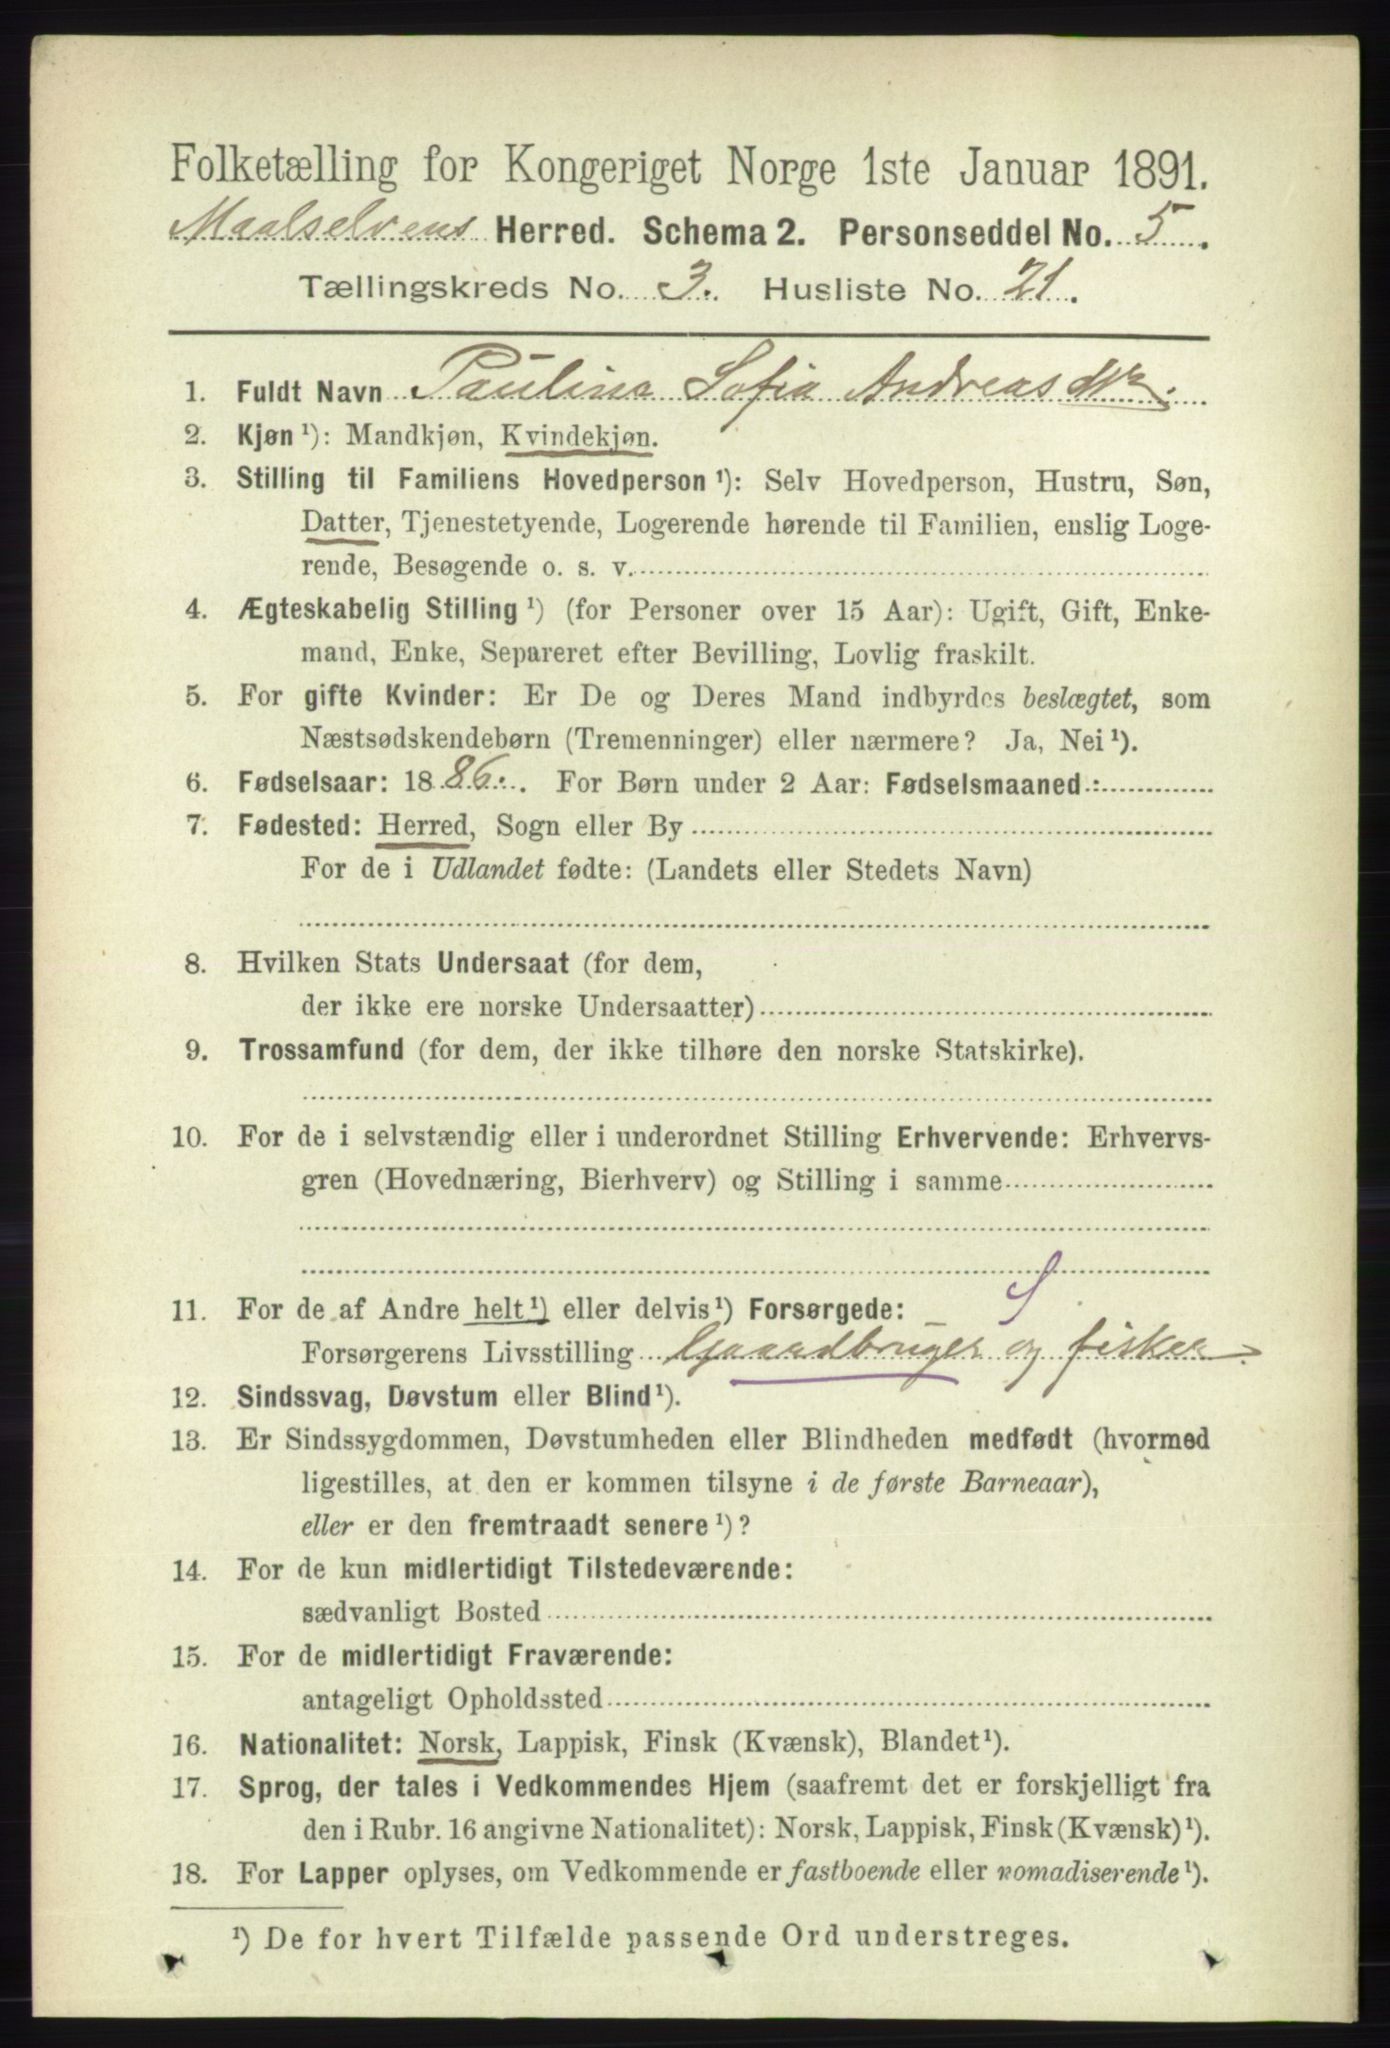 Folketælling for Kongeriget Norge 1ste Januar 1891.
Maalselvens Herred. Schema 2. Personseddel No. 5.
Tællingskreds No. 3. Husliste No. 21.
1. Fuldt Navn Paulina Sofia Andreasdtr.
2. Kjøn ¹): Mandkjøn, Kvindekjøn.
3. Stilling til Familiens Hovedperson ¹): Selv Hovedperson, Hustru, Søn,
Datter, Tjenestetyende, Logerende hørende til Familien, enslig Loge-
rende, Besøgende o. s. v.
4. Ægteskabelig Stilling ¹) (for Personer over 15 Aar): Ugift, Gift, Enke-
mand, Enke, Separeret efter Bevilling, Lovlig fraskilt.
5. For gifte Kvinder: Er De og Deres Mand indbyrdes beslægtet, som
Næstsødskendebørn (Tremenninger) eller nærmere? Ja, Nei ¹).
6. Fødselsaar: 1886. For Børn under 2 Aar: Fødselsmaaned:
7. Fødested: Herred, Sogn eller By
For de i Udlandet fødte: (Landets eller Stedets Navn)
8. Hvilken Stats Undersaat (for dem,
der ikke ere norske Undersaatter)
9. Trossamfund (for dem, der ikke tilhøre den norske Statskirke).
10. For de i selvstændig eller i underordnet Stilling Erhvervende: Erhvervs-
gren (Hovednæring, Bierhverv) og Stilling i samme
S
11. For de af Andre helt ¹) eller delvis ¹) Forsørgede:
Forsørgerens Livsstilling Gaardbruger og fisker.
12. Sindssvag, Døvstum eller Blind ¹).
13. Er Sindssygdommen, Døvstumheden eller Blindheden medfødt (hvormed
ligestilles, at den er kommen tilsyne i de første Barneaar),
eller er den fremtraadt senere ¹)?
14. For de kun midlertidigt Tilstedeværende:
sædvanligt Bosted
15. For de midlertidigt Fraværende:
antageligt Opholdssted
16. Nationalitet: Norsk, Lappisk, Finsk (Kvænsk), Blandet ¹).
17. Sprog, der tales i Vedkommendes Hjem (saafremt det er forskjelligt fra
den i Rubr. 16 angivne Nationalitet): Norsk, Lappisk, Finsk (Kvænsk) ¹).
18. For Lapper oplyses, om Vedkommende er fastboende eller nomadiserende ¹).
¹) De for hvert Tilfælde passende Ord understreges.